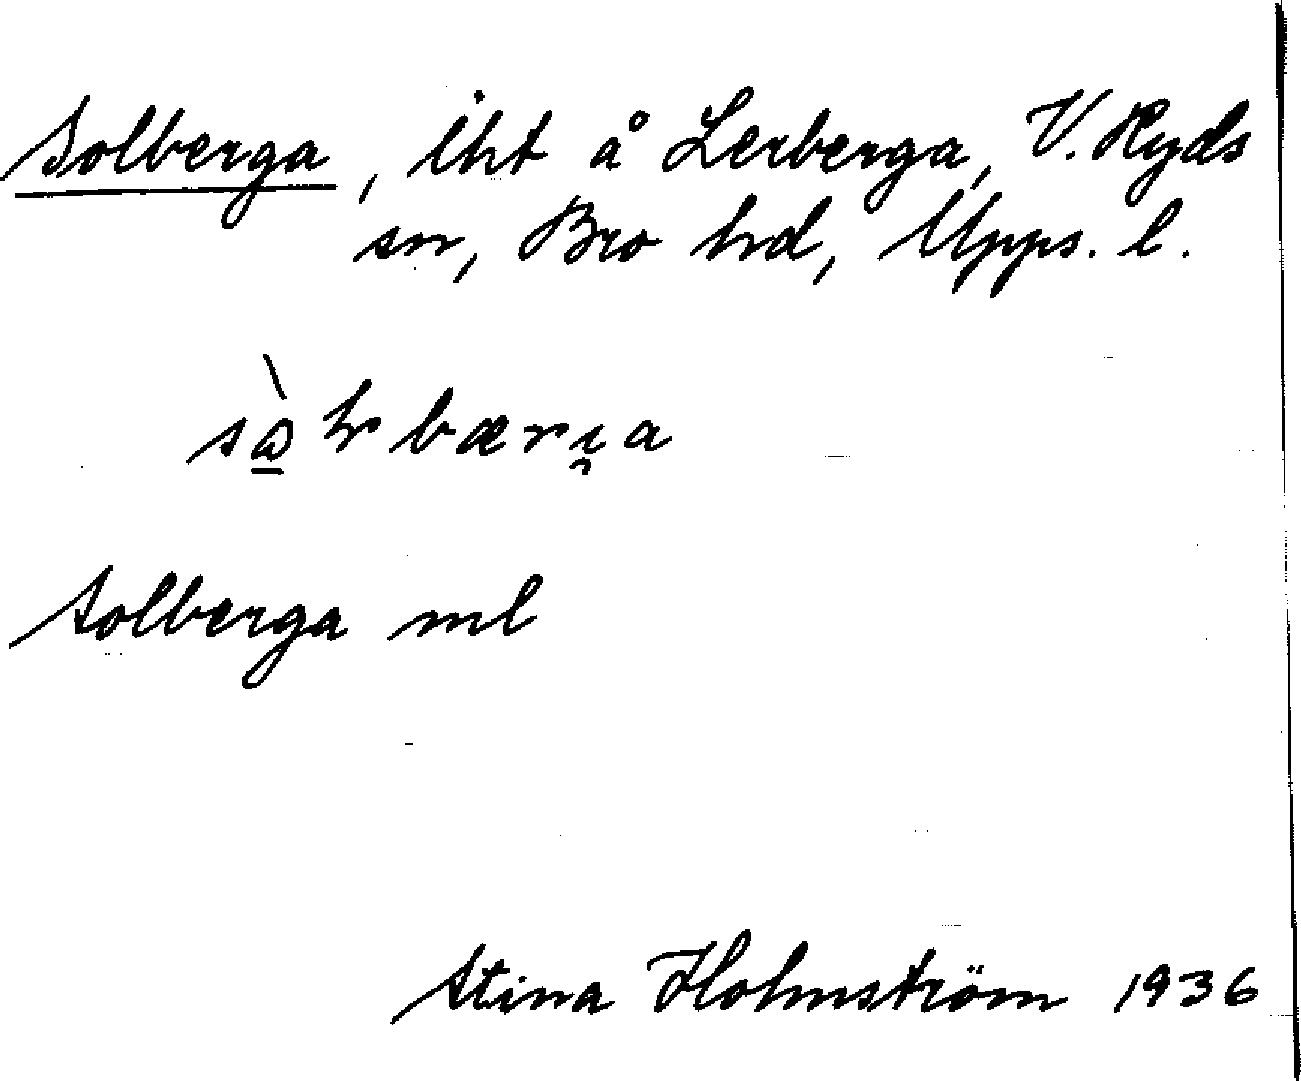 Solberga, lht å Lerberga, V. Ryds
sn, Bro hd, Upps. l.
Solberga ml
Stina Holmström 1936